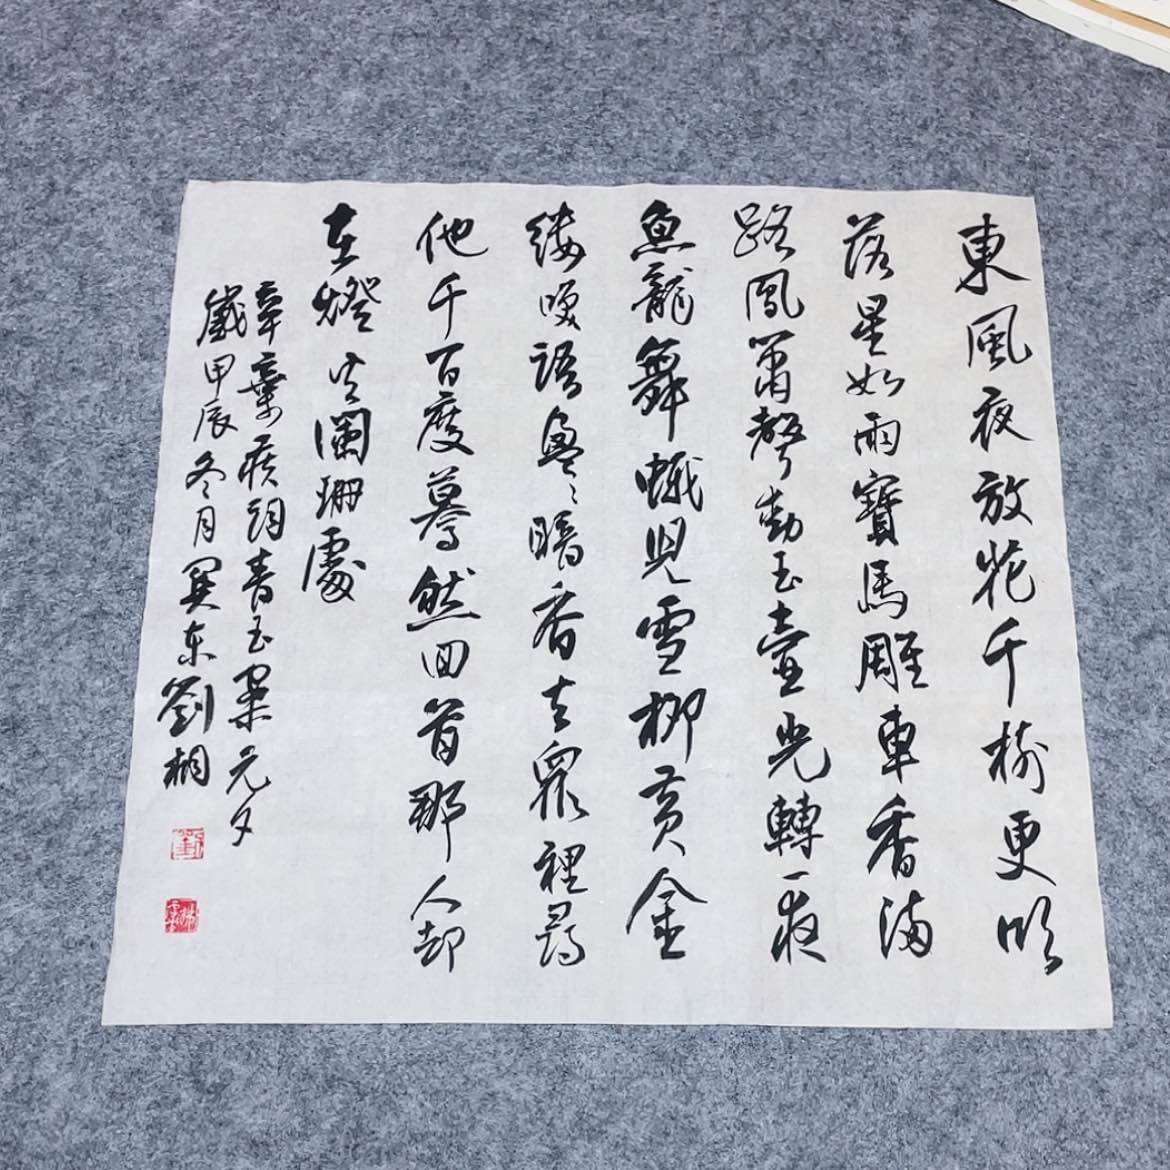 東風夜放花千樹更吹
落星如雨寶馬雕車香滿
路鳳簫聲動玉壺光轉一夜
魚龍舞蛾兒雪柳黃金
縷笑語盈〻暗香去眾裡尋
他千百度驀然回首那人却
在燈火闌珊處
辛棄疾詞青玉案元夕
歲甲辰冬月吴东劉桐